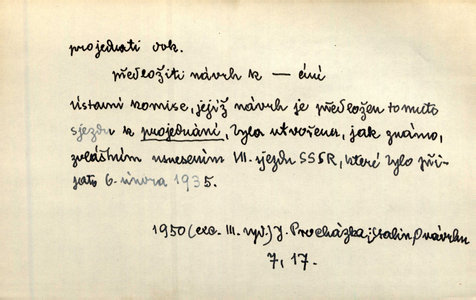 projednati dok.
předložiti návrh k — ční
Ústavní komise, jejíž návrh je předložen tomuto
sjezdu k projednání, byla utvořena, jak známo,
zvláštním usnesením VII. sjezdu SSSR, které bylo při-
jato 6. února 1935.
1950 (exc. III. vyd.) J. Procházka; Stalin, O návrhu
7, 17.